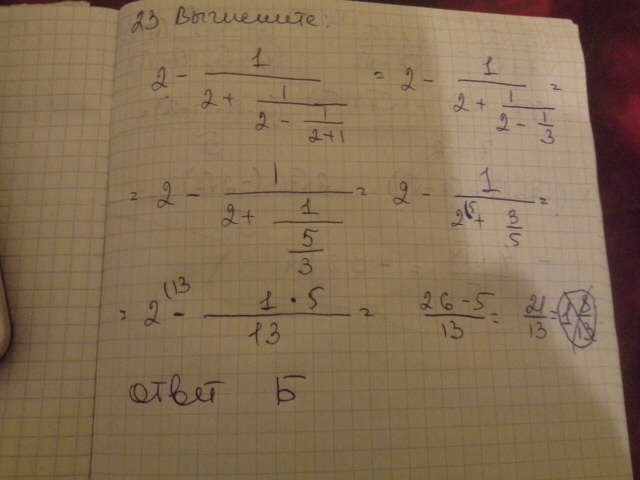 23 Вычислите:
2 - 1/(2 + 1/(2 - 1/(2+1))) = 2 - 1/(2 + 1/(2 - 1/3)) =
= 2 - 1/(2 + 1/(5/3)) = 2 - 1/(2 (5 + 3/5) =
= 2 (13 - (1 · 5)/13 = (26 - 5)/13 = 21/13 =
ответ Б